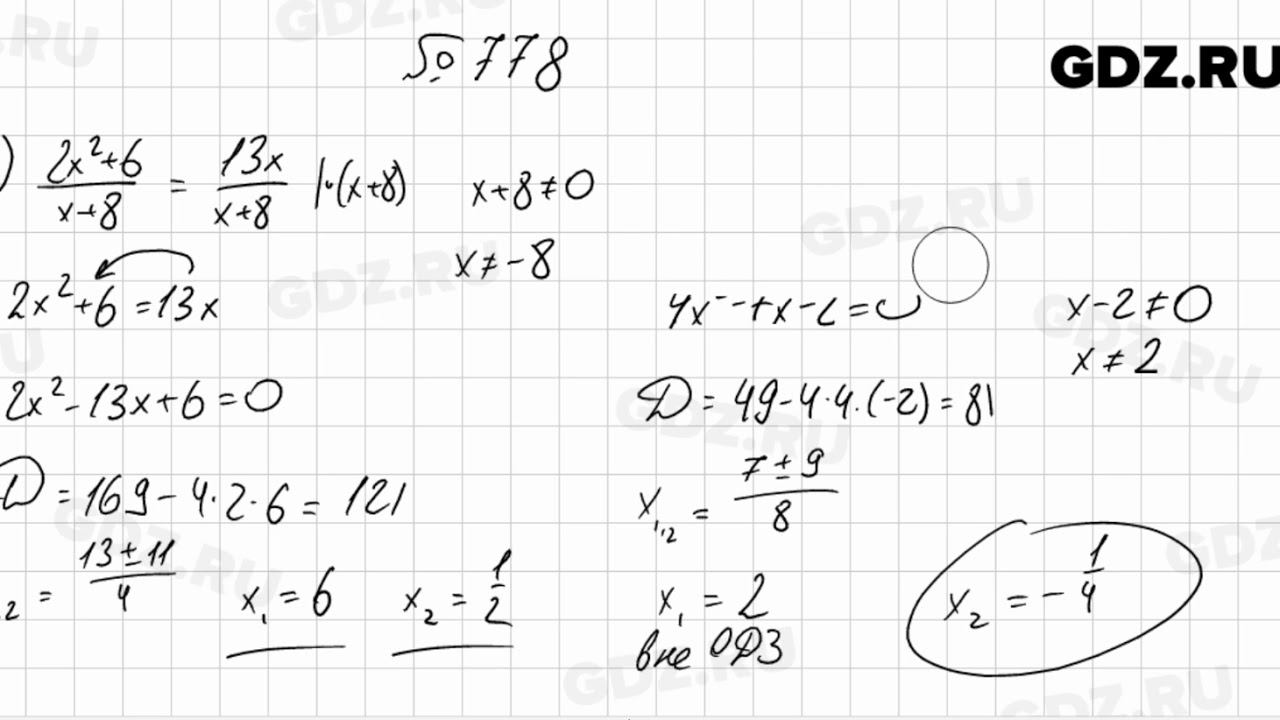 № 778
GDZ.RU
) (2x²+6)/(x+8) = 13x/(x+8) |·(x+8) x+8≠0
x≠-8
2x²+6=13x
2x²-13x+6=0
D = 169-4·2·6 = 121
₂ = (13±11)/4 x₁=6 x₂=1/2
x-2≠0
x≠2
D = 49-4·4·(-2) = 81
x₁,₂ = (7±9)/8
x₁ = 2
вне ОДЗ
x₂ = -1/4